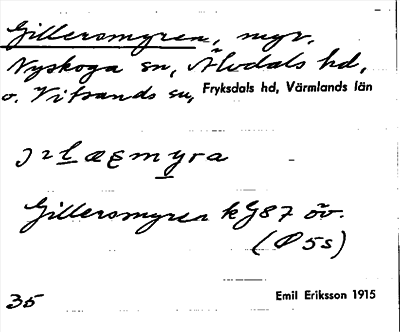 Gillersmyren, myr,
Nyskoga sn, Älvdals hd,
o. Vitsands sn, Fryksdals hd, Värmlands län
Gillersmyren kg87 öv.
(Ø5s)
35 Emil Eriksson 1915